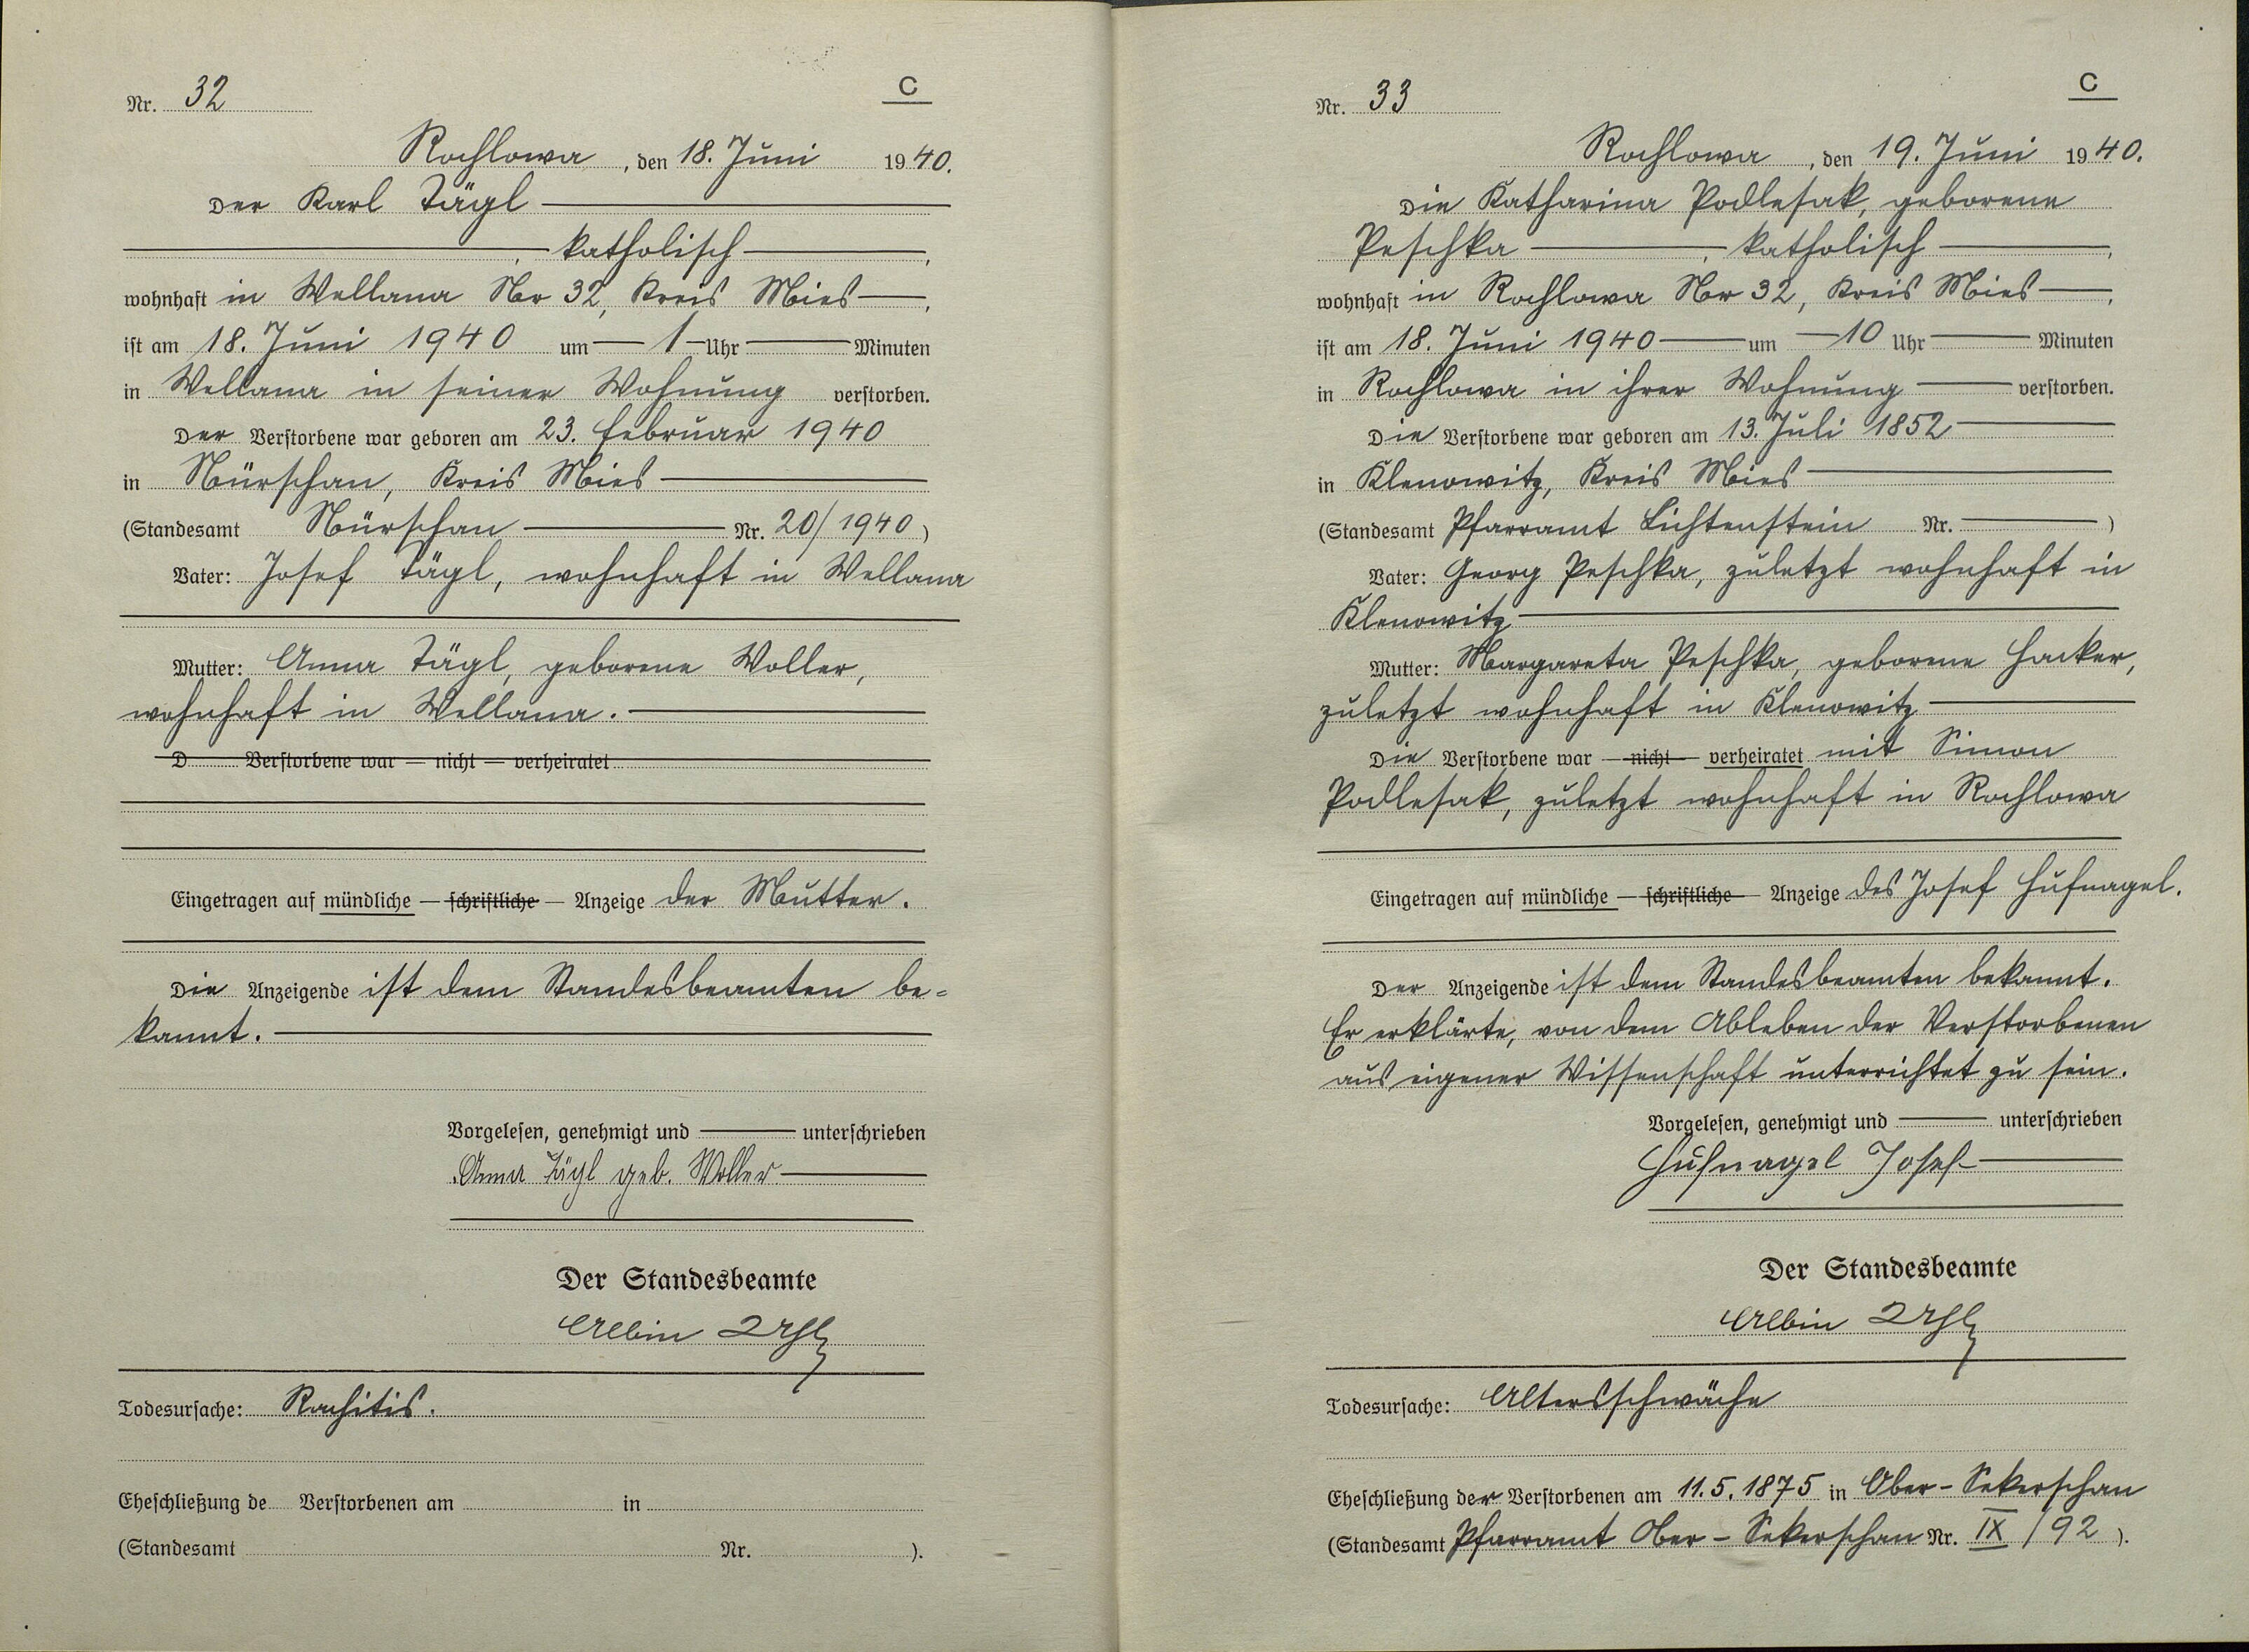 Nr. 32
C
Rochlowa, den 18. Juni 1940.
Der Karl Tägl
katholisch,
wohnhaft in Wellana Nr 32, Kreis Mies,
ist am 18. Juni 1940 um 1 Uhr Minuten
in Wellana in seiner Wohnung verstorben.
Der Verstorbene war geboren am 23. Februar 1940
in Nürschan, Kreis Mies
(Standesamt Nürschan Nr. 20/1940)
Vater: Josef Tägl, wohnhaft in Wellana
Mutter: Anna Tägl, geborene Woller,
wohnhaft in Wellana.
D Verstorbene war — nicht — verheiratet
Eingetragen auf mündliche — schriftliche — Anzeige der Mutter.
Die Anzeigende ist dem Standesbeamten be=
kannt.
Vorgelesen, genehmigt und unterschrieben
Anna Tägl geb. Woller
Der Standesbeamte
Albin
Todesursache: Rachitis.
Eheschließung de Verstorbenen am in
(Standesamt Nr. ).
Nr. 33
C
Rochlowa, den 19. Juni 1940.
Die Katharina Podlesak, geborene
Peschka, katholisch,
wohnhaft in Rochlowa Nr 32, Kreis Mies,
ist am 18. Juni 1940 um 10 Uhr Minuten
in Rochlowa in ihrer Wohnung verstorben.
Die Verstorbene war geboren am 13. Juli 1852
in Klenowitz, Kreis Mies
(Standesamt Pfarramt Lichtenstein Nr. )
Vater: Georg Peschka, zuletzt wohnhaft in
Klenowitz
Mutter: Margareta Peschka, geborene Hacker,
zuletzt wohnhaft in Klenowitz
Die Verstorbene war — nicht — verheiratet mit Simon
Podlesak, zuletzt wohnhaft in Rochlowa
Eingetragen auf mündliche — schriftliche — Anzeige des Josef Hufnagel.
Der Anzeigende ist dem Standesbeamten bekannt.
Er erklärte, von dem Ableben der Verstorbenen
aus eigener Wissenschaft unterrichtet zu sein.
Vorgelesen, genehmigt und unterschrieben
Hufnagel Josef
Der Standesbeamte
Albin
Todesursache: Altersschwäche
Eheschließung der Verstorbenen am 11.5.1875 in Ober-Sekerschan
(Standesamt Pfarramt Ober-Sekerschan Nr. IX/92).